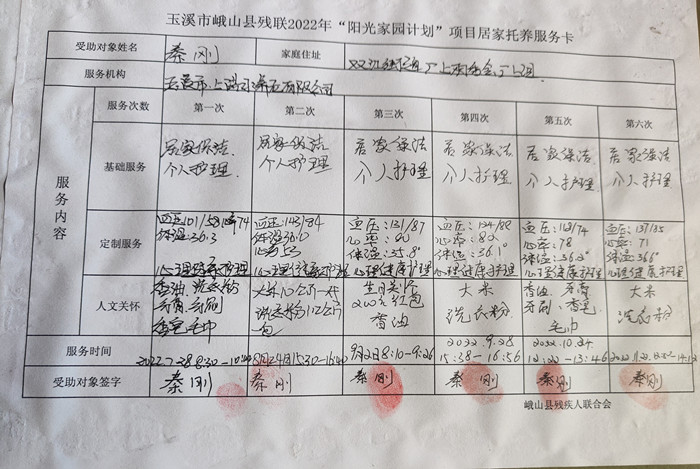 玉溪市峨山县残联2022年“阳光家园计划”项目居家托养服务卡
受助对象姓名 秦刚 家庭住址
服务机构 玉溪市 有限公司
服务内容
服务次数 第一次 第二次 第三次 第四次 第五次 第六次
基础服务 居家保洁 居家保洁 居家保洁 居家保洁 居家保洁 居家保洁
个人护理 个人护理 个人护理 个人护理 个人护理 个人护理
定制服务 血压 血压:143/84 血压:131/87 血压:134/88 血压: 血压:137/85
体温:36.3 体温:36.0 心率: 心率:80 心率:78 心率:71
体温:35.8° 体温:36.1° 体温:36.2° 体温:36.6°
心理健康护理 心理健康护理 心理健康护理 心理健康护理 心理健康护理 心理健康护理
人文关怀 香油、洗衣粉 大米10公斤一袋 大米 香油、牙膏 大米
牙膏、牙刷 洗衣粉 200元红包 洗衣粉 牙刷、香皂 洗衣粉
香皂毛巾 一包 香油 毛巾
服务时间 2022.9.28 2022.10.24
8月24日15:30-16:40 9月2日8:10-9:26 15:38-16:56 12:20-13:46
受助对象签字 秦刚 秦刚 秦刚 秦刚 秦刚 秦刚
峨山县残疾人联合会